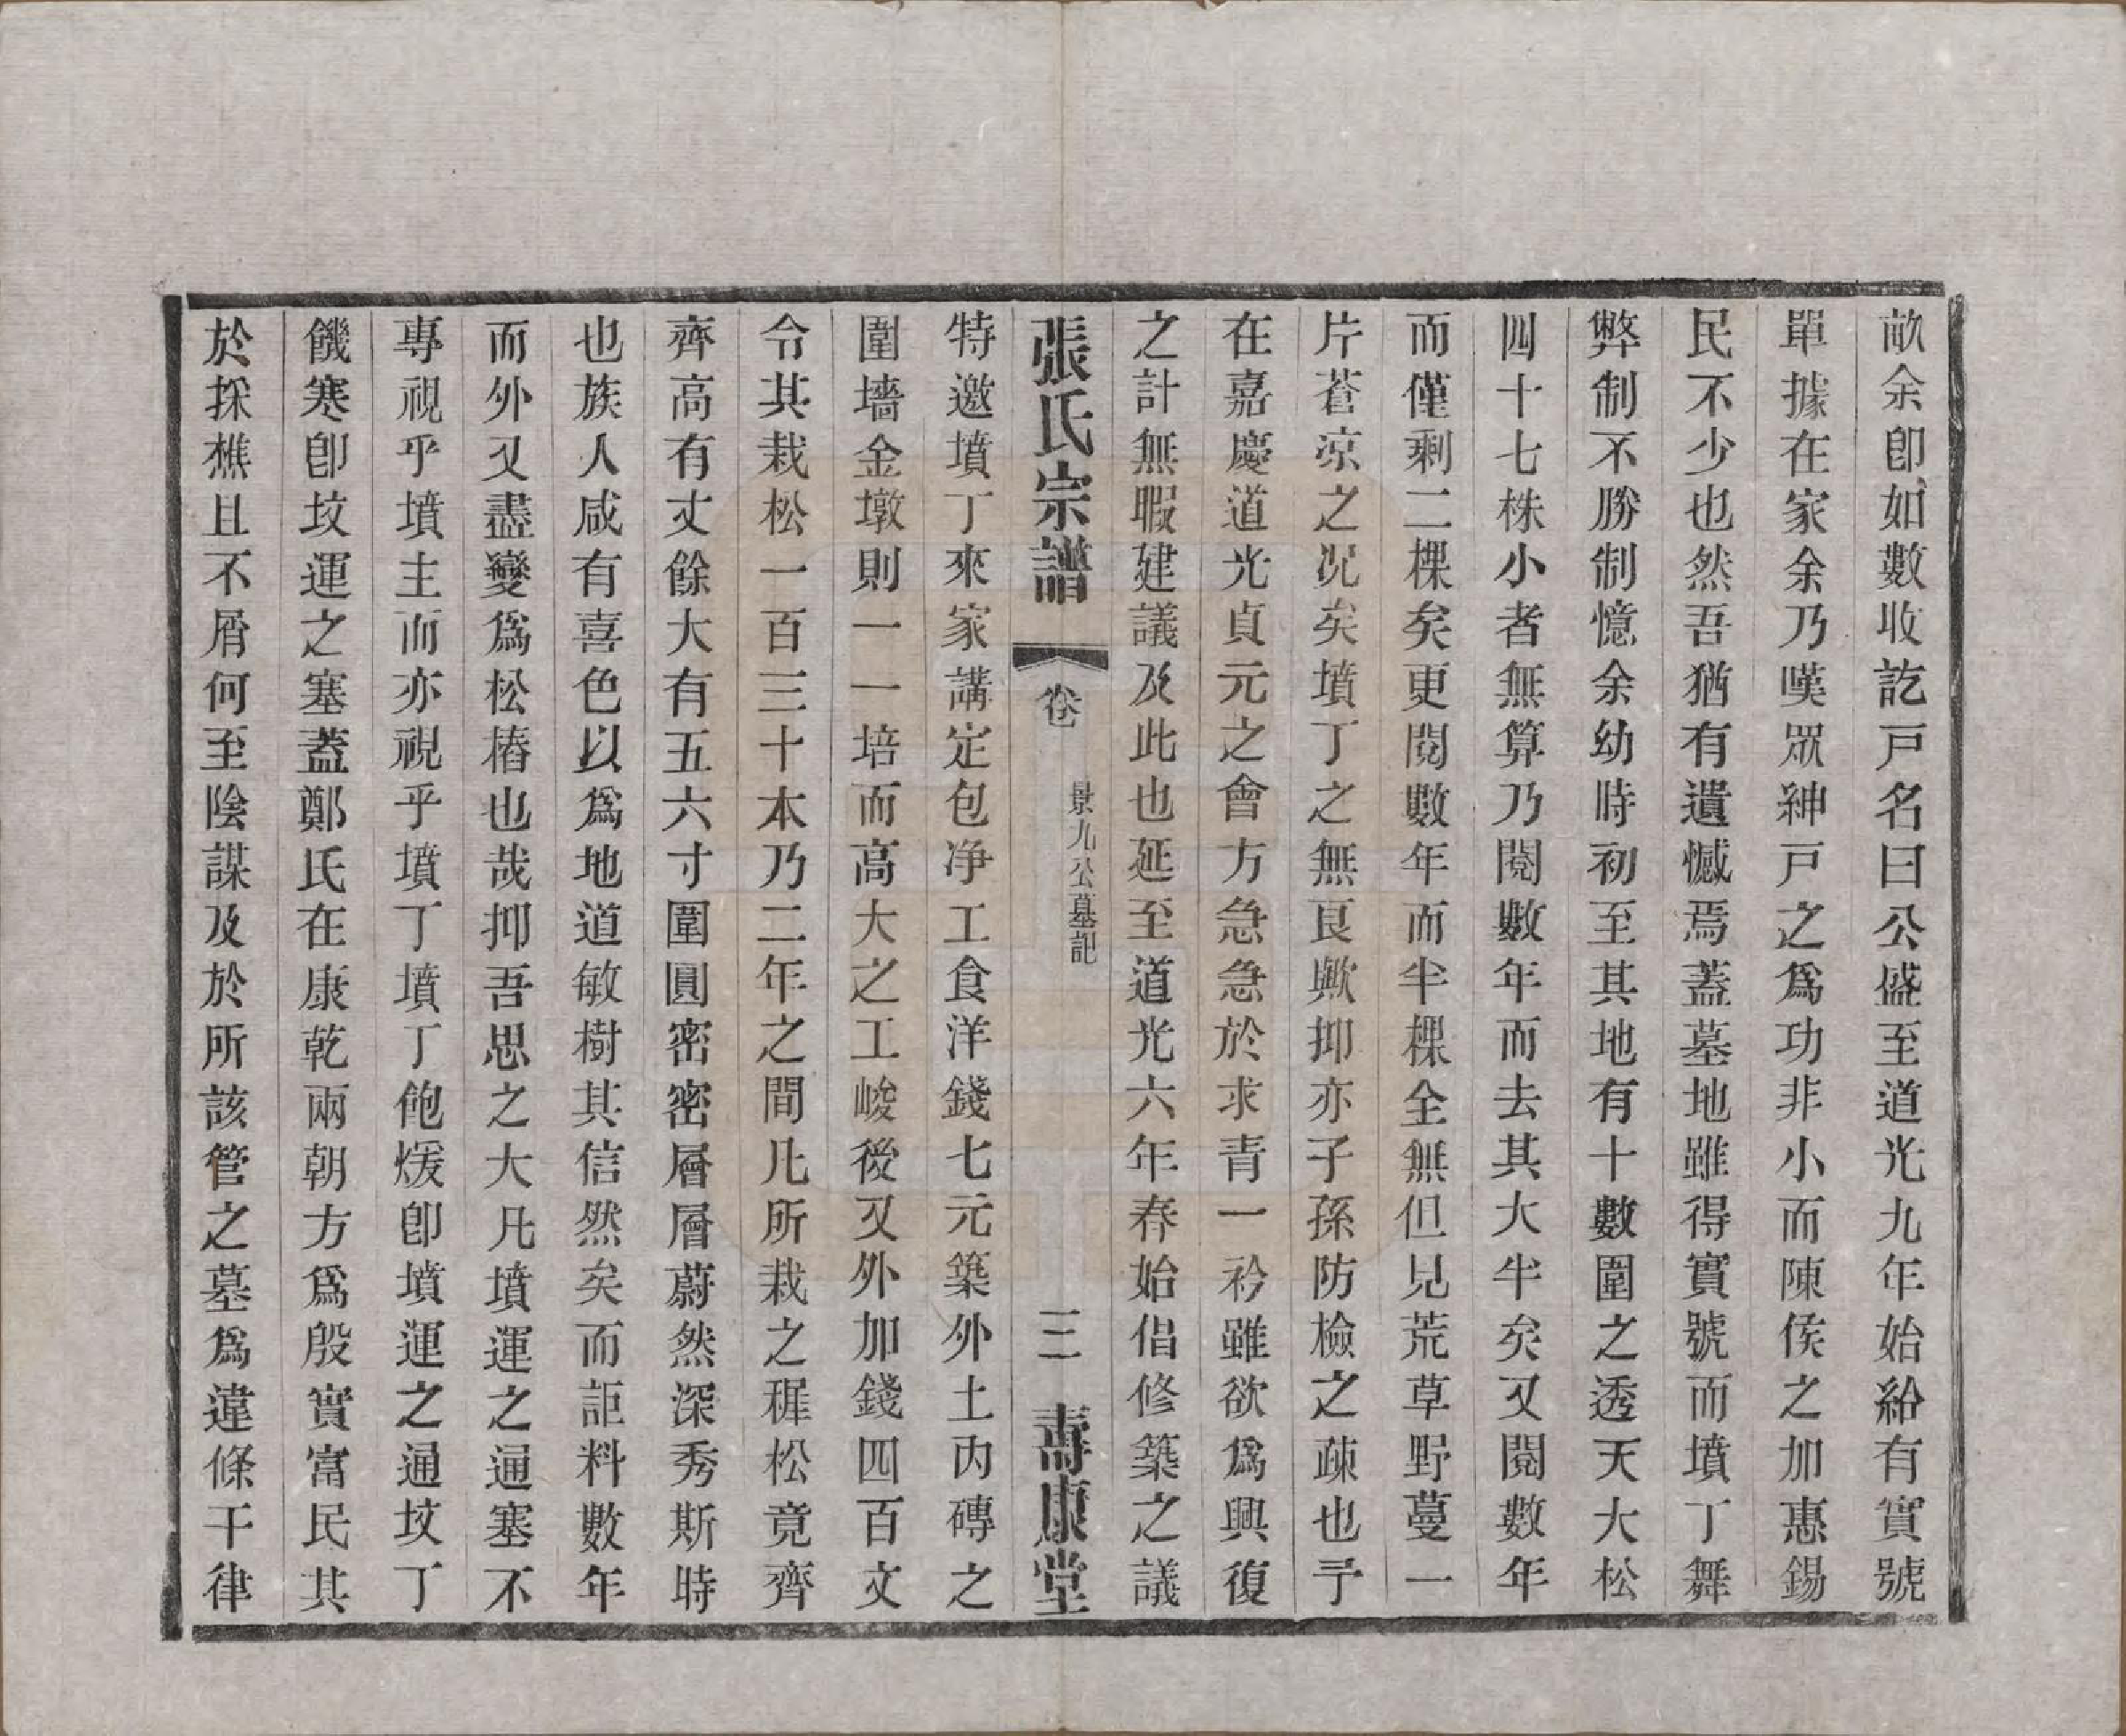 畝余卽如數收訖戸名曰公盛至道光九年始給有實號
單據在家余乃嘆眾紳戸之爲功非小而陳侯之加惠錫
民不少也然吾猶有遺憾焉蓋墓地雖得實號而墳丁舞
弊制不勝制憶余幼時初至其地有十數圍之透天大松
四十七株小者無算乃閱數年而去其大半矣又閱數年
而僅剩二棵矣更閱數年而半棵全無但見荒草野蔓一
片蒼凉之况矣墳丁之無良歟抑亦子孫防檢之疎也予
在嘉慶道光貞元之會方急急於求青一衿雖欲爲興復
之計無暇建議及此也延至道光六年春始倡修築之議
張氏宗譜 卷 景九公墓記 三 壽康堂
特邀墳丁來家講定包净工食洋錢七元築外土内磚之
圍墻金墩則一一培而高大之工峻後又外加錢四百文
令其栽松一百三十本乃二年之間凡所栽之穉松竟齊
齊高有丈餘大有五六寸圍圓密密層層蔚然深秀斯時
也族人咸有喜色以爲地道敏樹其信然矣而詎料數年
而外又盡變爲松樁也哉抑吾思之大凡墳運之通塞不
專視乎墳主而亦視乎墳丁墳丁飽煖卽墳運之通坟丁
饑寒卽坟運之塞蓋鄭氏在康乾兩朝方爲殷實富民其
於採樵且不屑何至陰謀及於所該管之墓爲違條干律